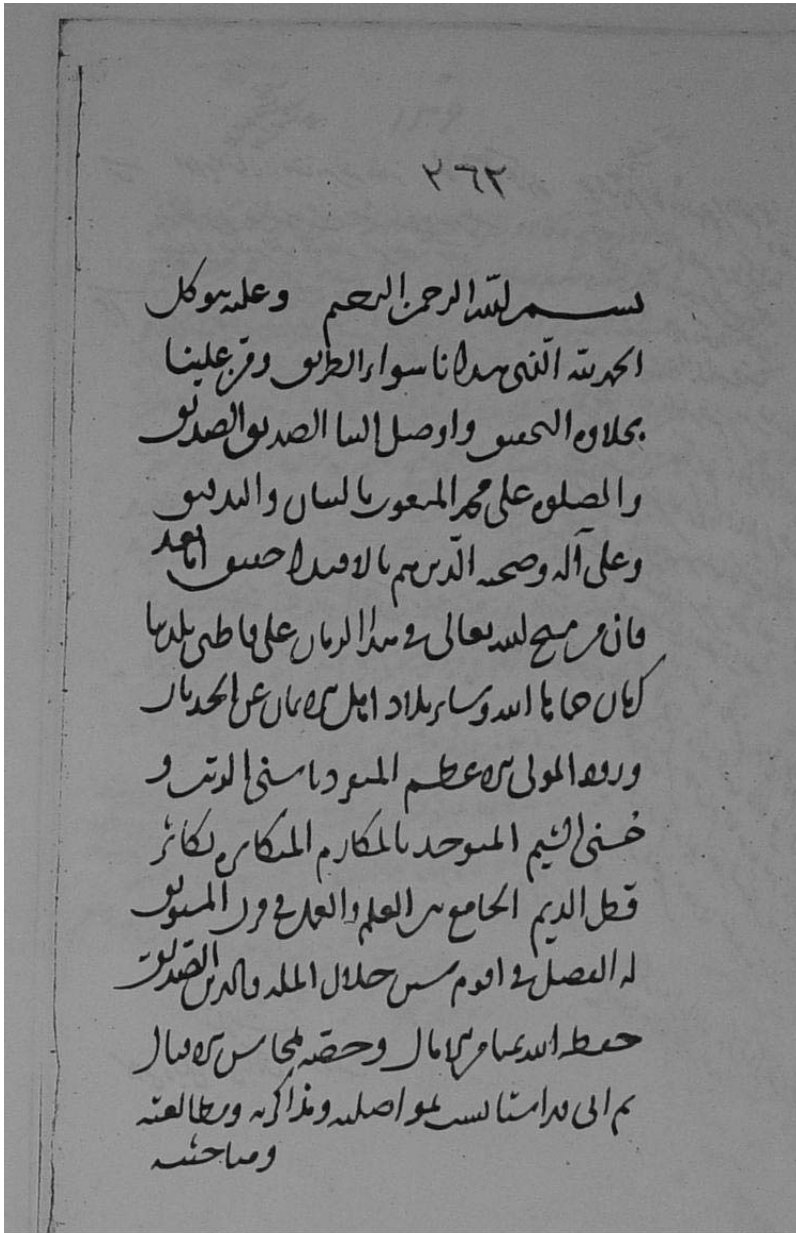 ٣٦٢
بسم الله الرحمن الرحيم وعليه توكل
الحمد لله الذي هدانا سواء الطريق وفرج علينا
بحلاوة التحقيق واوصل الينا الصديق الصديق
والصلوة على محمد المبعوث بالبيان والتدقيق
وعلى آله وصحبه الذين هم بالاقتداء حقيق اما بعد
فان من منح الله تعالى في هذا الزمان على قاطني بلدتنا
حماها الله وسائر بلاد اهل الايمان عن الحدثان
ورود المولى الاعظم المتفرد باسنى الرتب و
حسنى الشيم المتوحد بالمكارم المتكاثرة تكاثر
قطر الديم الجامع بين العلم والعمل في قرن المسبوق
له الفضل في اقوم سنن جلال الملة والدين الصديق
حفظه الله عما الامال وحصه بمحاسن الاقبال
ثم اني قد استانست لمواصلته ومذاكرته ومطالعته
ومباحثته